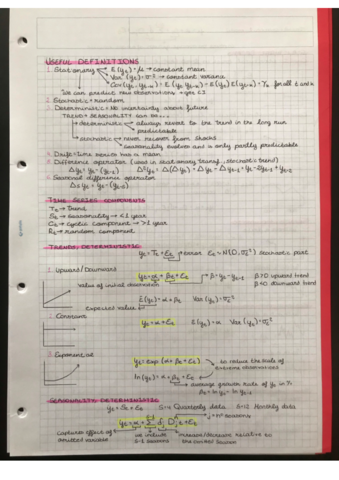 USEFUL DEFINITIONS
1. Stationary → E(yt) = μ → constant mean
Var(yt) = σ² → constant variance
for all t and k
We can predict new observations + get CI
2. Stochastic = random
3. Deterministic = No uncertainty about future
TREND + SEASONALITY can be...
deterministic → always revert to the trend in the long run
predictable
stochastic → never recover from shocks
seasonality evolves and is only partly predictable
4. Drift = time series has a mean
5. Difference operator (used in stationary transf., stochastic trend)
6. Seasonal difference operator
TIME SERIES COMPONENTS
Tt = Trend
St = Seasonality → <1 year
Ct = cyclic component → >1 year
Rt = random component
TRENDS, DETERMINISTIC
yt = Tt + Et → error Et ~ N(0, σε²) stochastic part
1. Upward/Downward
yt = α + βt + Et → β = yt - yt-1 β>0 upward trend
value of initial observation β<0 downward trend
E(yt) = α + βt Var(yt) = σε²
Expected value
2. Constant
yt = α + Et E(yt) = α Var(yt) = σε²
3. Exponential
yt = exp(α + βt + Et) → to reduce the scale of
extreme observations
ln(yt) = α + βt + Et
average growth rate of yt in %
SEASONALITY, DETERMINISTIC
yt = St + Et S=4 Quarterly data S=12 Monthly data
captures effect of
omitted variable
we include
S-1 seasons
increase/decrease relative to
the omitted season